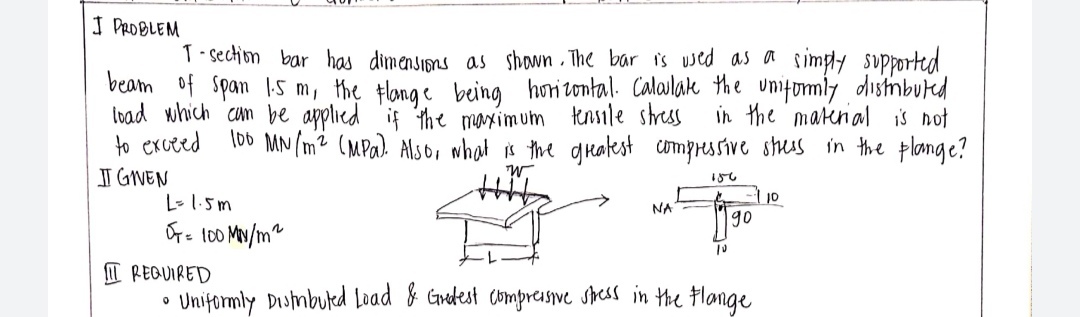 I PROBLEM
T-section bar has dimensions as shown. The bar is used as a simply supported
beam of span 1.5 m, the flange being horizontal. Calculate the uniformly distributed
load which can be applied if the maximum tensile stress in the material is not
to exceed 100 MN/m² (MPa). Also, what is the greatest compressive stress in the flange?
II GIVEN
L= 1.5m
σT= 100 MN/m²
W
L
NA
10
90
10
III REQUIRED
• Uniformly Distributed Load & Greatest compressive stress in the Flange